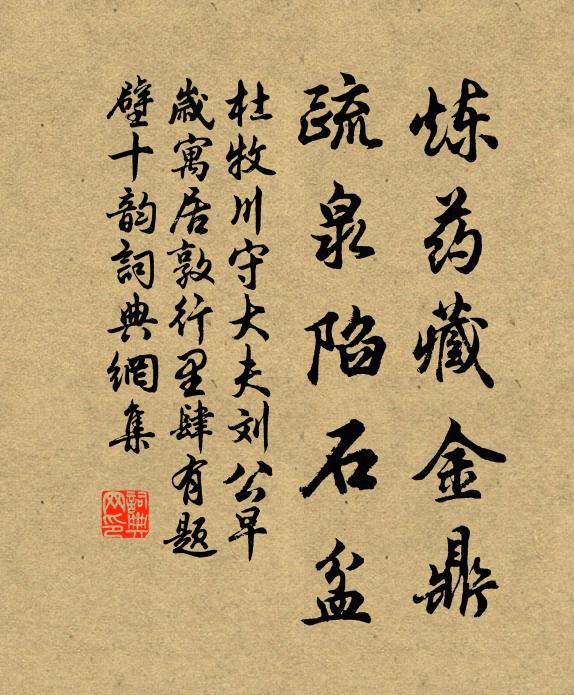 炼药藏金鼎
疏泉陷石盆
杜牧川守大夫刘公早
岁寓居敦行里肆有题
壁十韵词典網集
詞典
网印